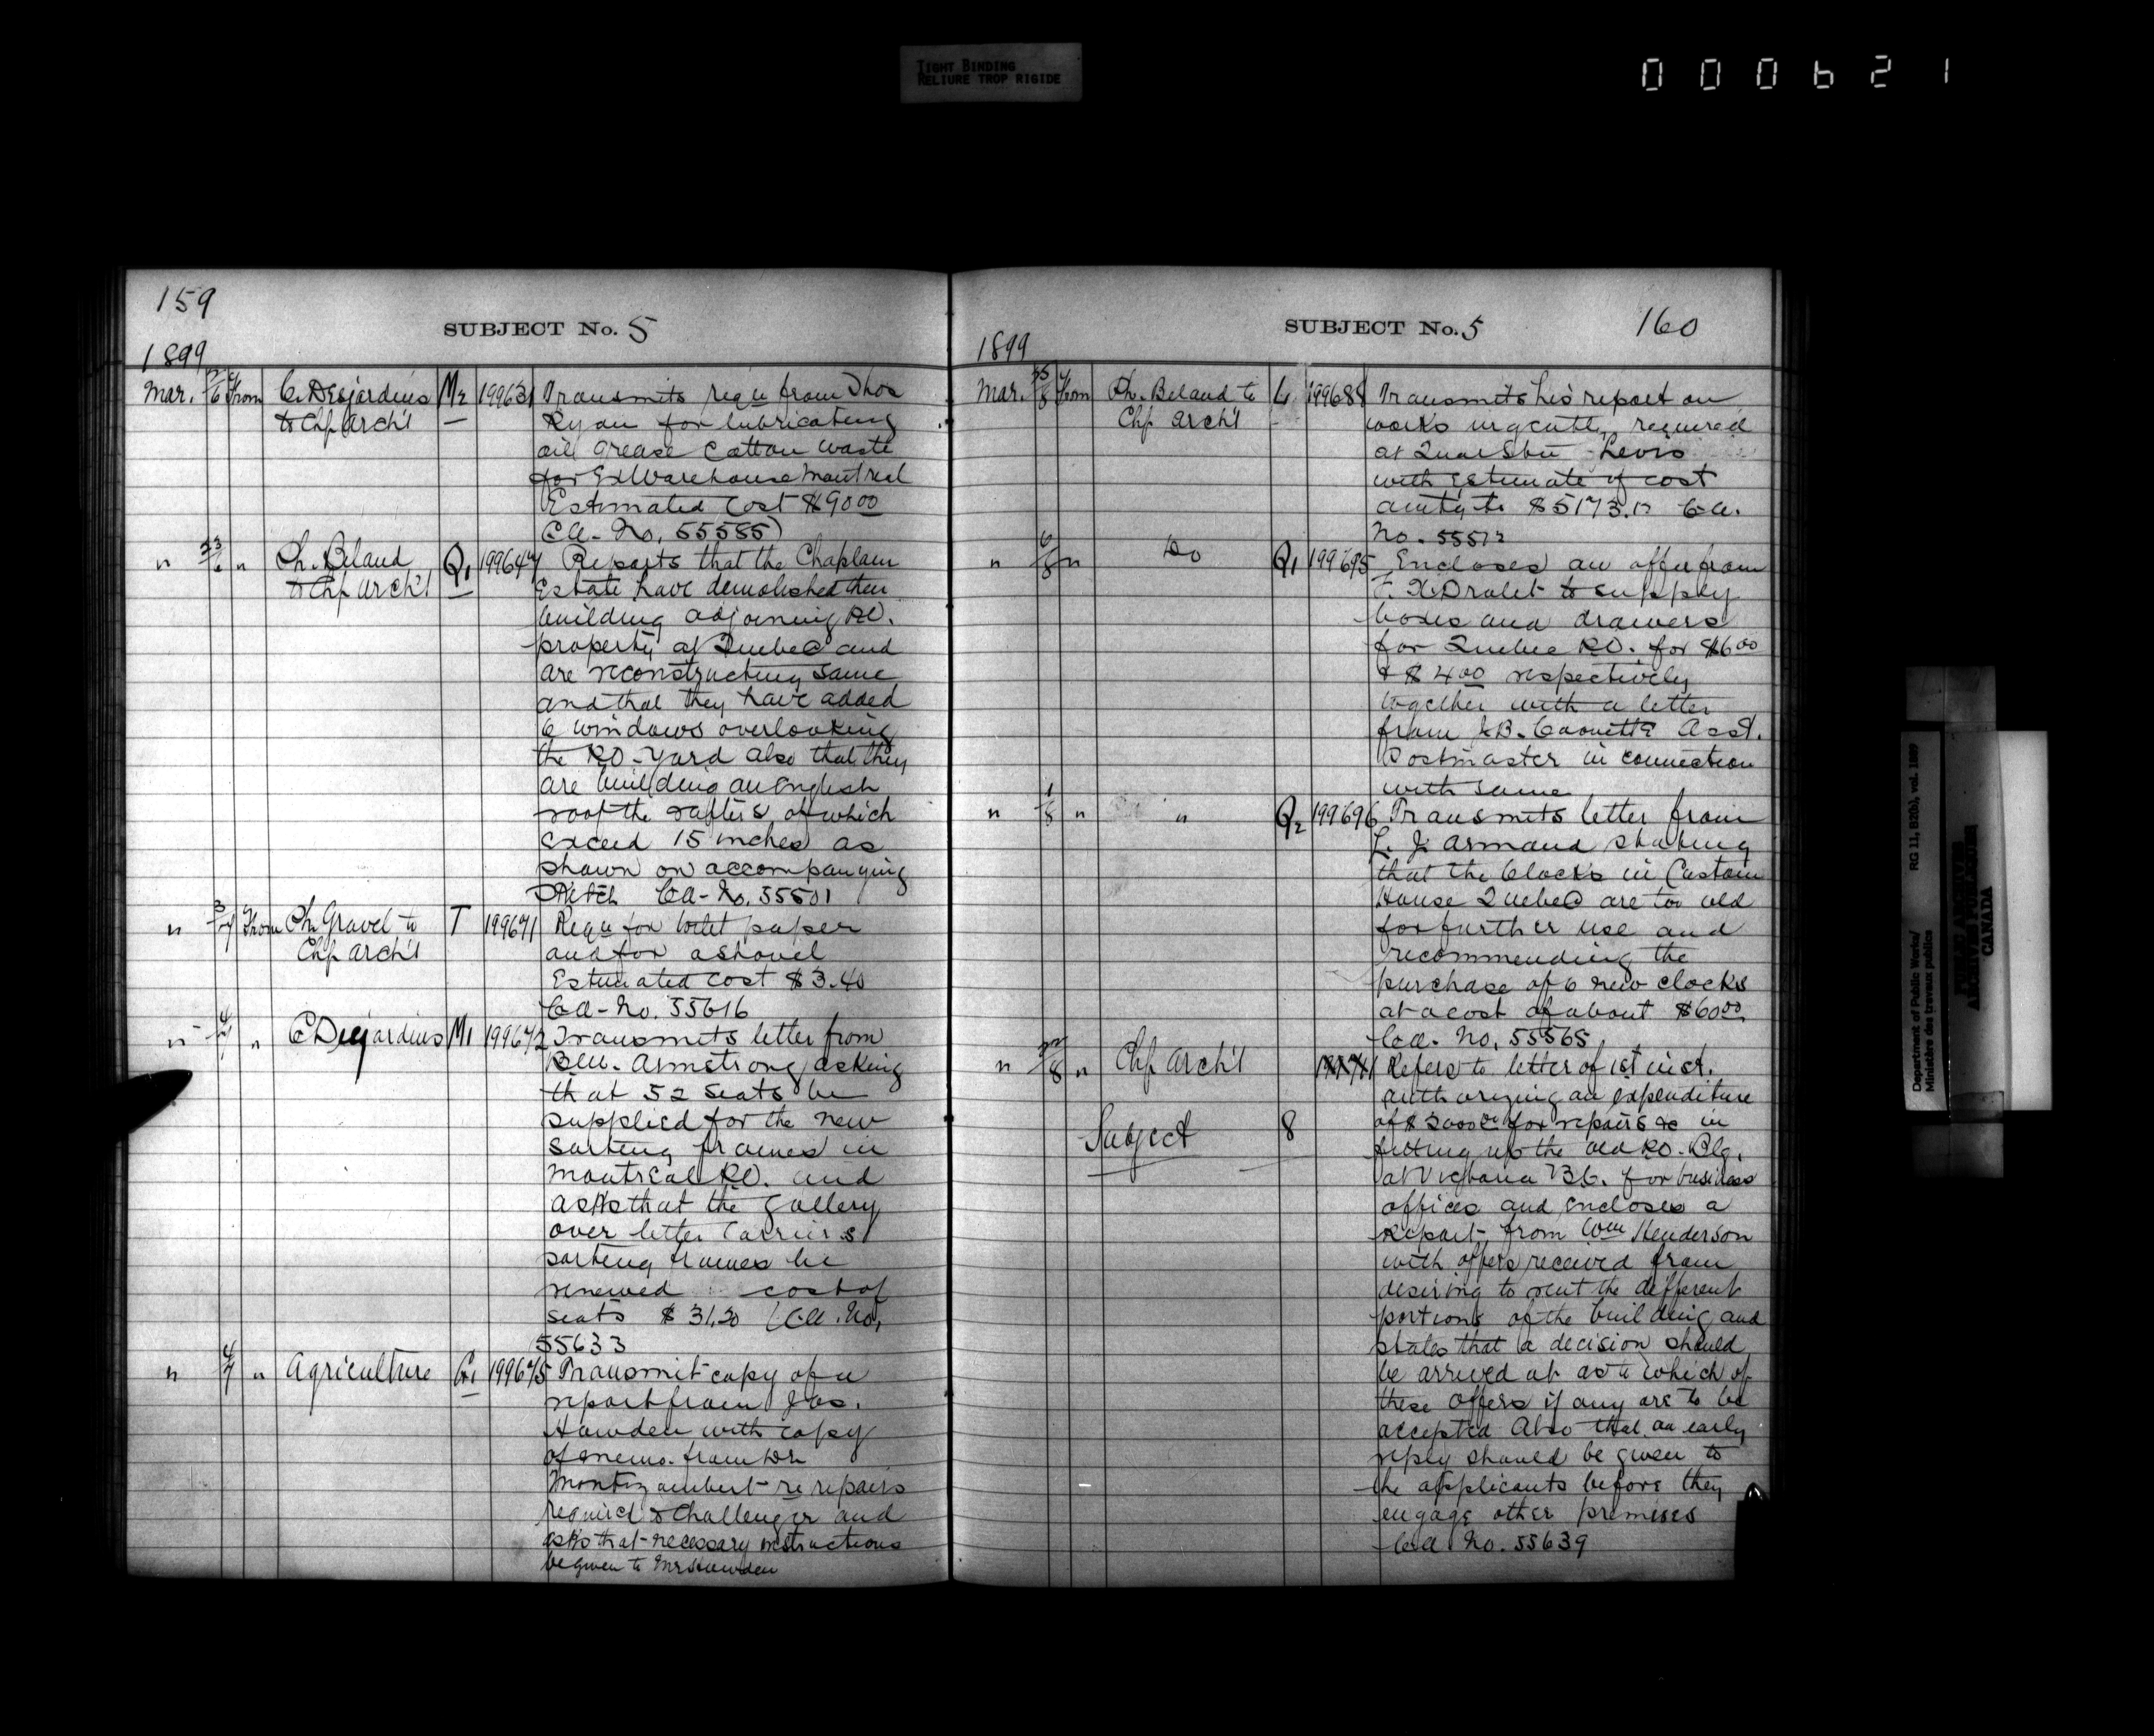 TIGHT BINDING
RELIURE TROP RIGIDE
000621
159
SUBJECT No. 5
1899
Mar. 6 From C. Desjardins to Chf Arch'l M2 199631 Transmits reqn from Thos
Ryan for lubricating
oil grease Cotton waste
for Ex Warehouse Montreal
Estimated Cost $90.00
Ca. No. 55585)
" 23/6 " Ch. Beland to Chf Arch'l Q1 199647 Reports that the Chaplain
Estate have demolished their
building adjoining P.O.
property at Quebec and
are reconstructing same
and that they have added
6 windows overlooking
the P.O. yard also that they
are building an English
roof the rafters of which
exceed 15 inches as
shown on accompanying
Sketch Ca. No. 55501
" 3/7 From Ch. Gravel to Chf Arch'l T 199671 Reqn for toilet paper
and for a shovel
Estimated cost $3.40
Ca. No. 55616
" 4/7 " C Desjardins M1 199672 Transmits letter from
Armstrong asking
that 52 seats be
supplied for the new
sorting frames in
Montreal P.O. and
asks that the gallery
over letter Carriers
sorting frames be
renewed cost of
seats $31.20 (Ca. No.
55633
" 4/7 " Agriculture G1 199675 Transmit copy of a
report from Jas.
Howden with copy
of memo. from Dr
Montizambert re repairs
required to Challenger and
asks that necessary instructions
be given to Mr Howden
SUBJECT No. 5
160
1899
Mar. 8 From Ch. Beland to Chf Arch'l L 199688 Transmits his report on
works urgently required
at Quar Stn Levis
with Estimate of cost
amtg to $5173. Ca.
No. 55512
" 6/8 " Do Q1 199695 Encloses an offer from
F. X. Drolet to supply
boxes and drawers
for Quebec P.O. for $6.00
& $4.00 respectively
together with a letter
from J.B. Caouette Asst.
Postmaster in connection
with same
" 1/8 " " Q2 199696 Transmits letter from
L. J. Armand stating
that the Clocks in Custom
House Quebec are too old
for further use and
recommending the
purchase of 6 new clocks
at a cost of about $60.00.
Ca. No. 55565
" 22/8 " Chf Arch'l Refers to letter of 1st inst.
authorizing an expenditure
of $2000.00 for repairs &c in
fitting up the old P.O. Blg.
at Victoria B.C. for business
Subject 8
offices and encloses a
Report from Wm Henderson
with offers received from
desiring to rent the different
portions of the building and
states that a decision should
be arrived at as to which of
these offers if any are to be
accepted Also that an early
reply should be given to
the applicants before they
engage other premises
Ca No. 55639
Department of Public Works/
Ministère des travaux publics
RG 11, B2(b), vol. 1889
PUBLIC ARCHIVES
ARCHIVES PUBLIQUES
CANADA